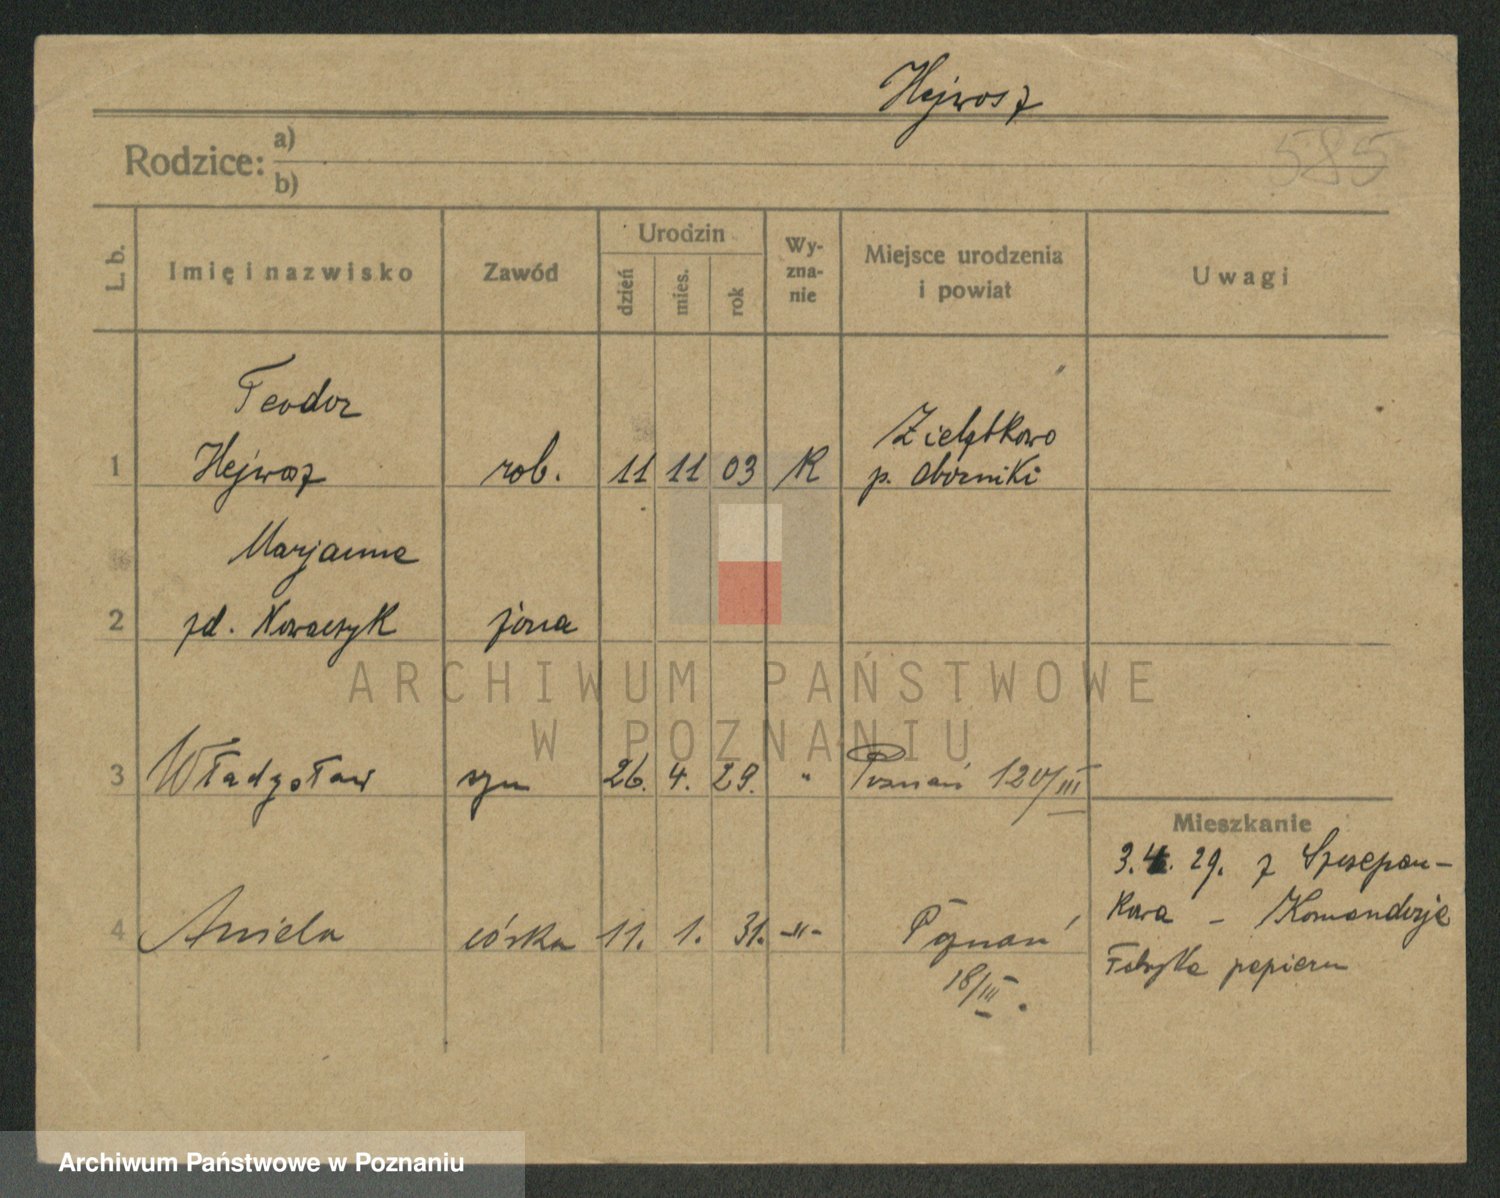 Hejwosz
585
Rodzice: a)
b)
L. b.
Imię i nazwisko
Zawód
Urodzin
dzień
mies.
rok
Wy-
zna-
nie
Miejsce urodzenia
i powiat
Uwagi
Teodor
1 Hejwosz rob. 11 11 03 K
Zielątkowo
p. Oborniki
Marjanna
2 zd. Kowaczyk żona
3 Władysław syn 26. 4. 29. " Poznań 120/III
4 Aniela córka 11. 1. 31. -"- Poznań
18/III.
Mieszkanie
3. 4. 29. z Szczepan-
kowa – Komandorja
Fabryka papieru
ARCHIWUM PAŃSTWOWE
W POZNANIU
Archiwum Państwowe w Poznaniu